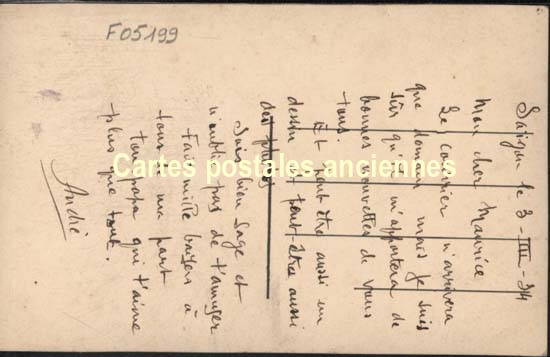 F05199
le 3-III-34
Mon cher Maurice
Le courrier n'arrivera
que demain mais je suis
sûr qu'il m'apportera de
bonnes nouvelles de vous
tous.
Et peut être aussi un
dessin et peut-être aussi
des photos
Sois bien sage et
n'oublie pas de t'amuser
Fais mille baisers à
tous de ma part
ton papa qui t'aime
plus que tout.
André
Cartes postales anciennes